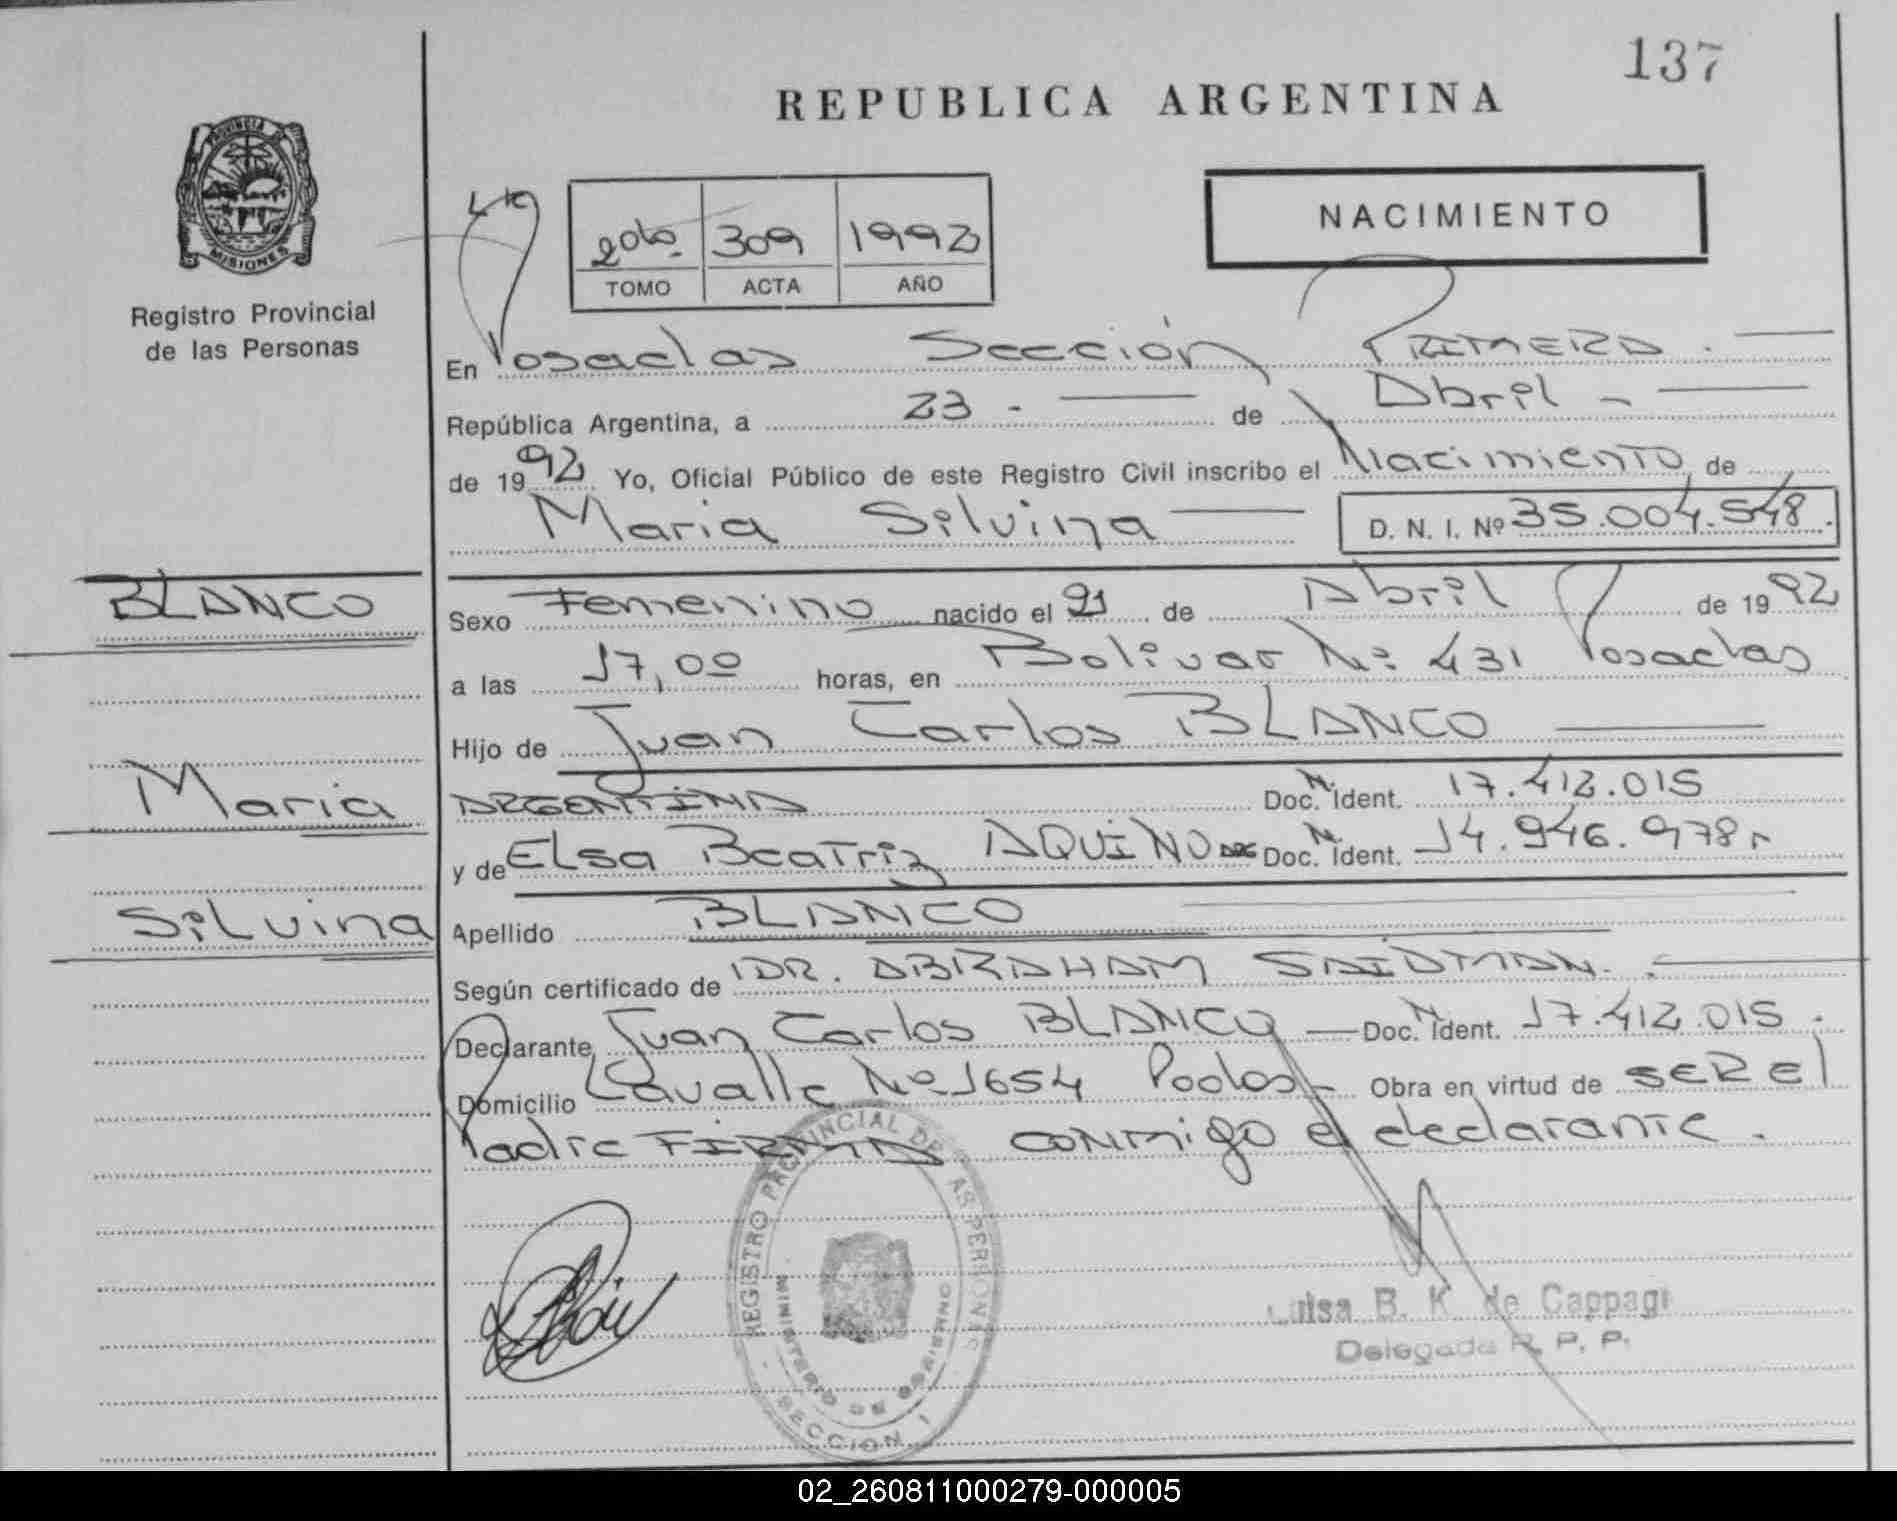 137
REPUBLICA ARGENTINA
PROVINCIA DE
MISIONES
Registro Provincial
de las Personas
NACIMIENTO
2do. 309 1992
TOMO ACTA AÑO
En Posadas Sección PRIMERA.
República Argentina, a 23 - de Abril -
de 1992 Yo, Oficial Público de este Registro Civil inscribo el Nacimiento de
Maria Silvina D. N. I. Nº 35.004.548.
BLANCO
Maria
Silvina
Sexo Femenino nacido el 21 de Abril de 1992
a las 17,00 horas, en Bolivar Nº 431 Posadas
Hijo de Juan Carlos BLANCO
ARGENTINA Doc. N. Ident. 17.412.015
y de Elsa Beatriz AQUINO ARG Doc. N. Ident. 14.946.978
Apellido BLANCO
Según certificado de DR. ABRAHAM SAIDMAN.
Declarante Juan Carlos BLANCO Doc. N. Ident. 17.412.015.
Domicilio Lavalle Nº 1654 Podas- Obra en virtud de SER el
Padre FIRMA conmigo el declarante.
REGISTRO PROVINCIAL DE LAS PERSONAS
MINISTERIO DE GOBIERNO
SECCION I
Luisa B. K. de Cappagi
Delegada R. P. P.
02_260811000279-000005